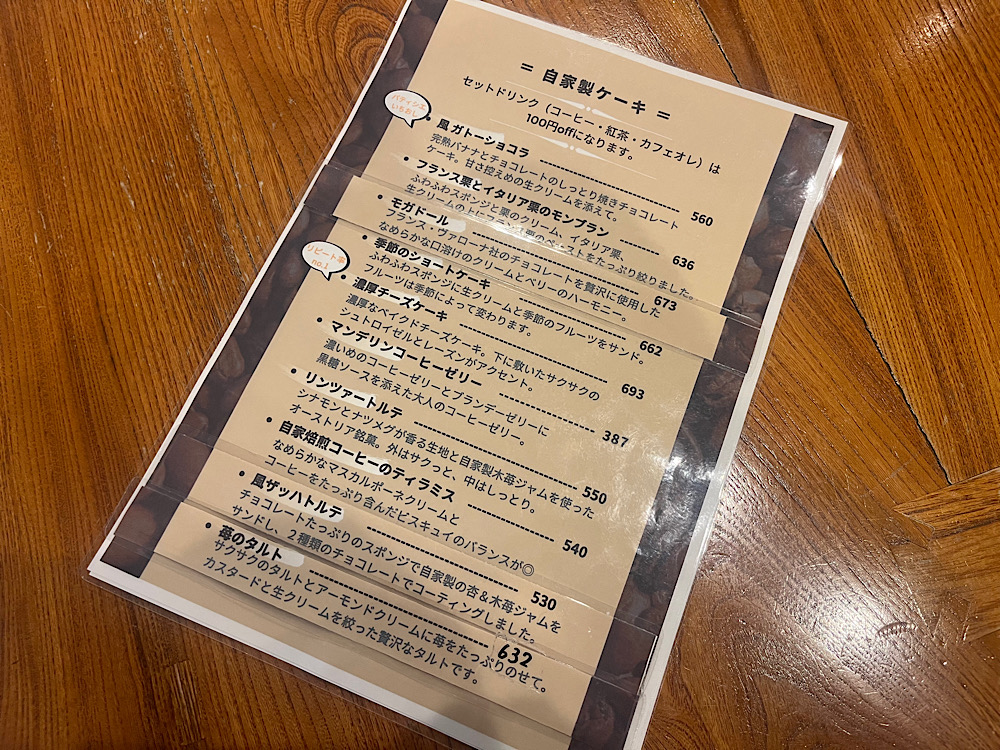 = 自家製ケーキ =
セットドリンク（コーヒー・紅茶・カフェオレ）は
100円offになります。
パティシエ
いちおし
• 風 ガトーショコラ ---------- 560
完熟バナナとチョコレートのしっとり焼きチョコレート
ケーキ。甘さ控えめの生クリームを添えて。
• フランス栗とイタリア栗のモンブラン ---------- 636
ふわふわスポンジと栗のクリーム、イタリア栗、
生クリームの上にフランス栗のペーストをたっぷり絞りました。
• モガドール ---------- 673
フランス・ヴァローナ社のチョコレートを贅沢に使用した
なめらかな口溶けのクリームとベリーのハーモニー。
• 季節のショートケーキ ---------- 662
ふわふわスポンジに生クリームと季節のフルーツをサンド。
フルーツは季節によって変わります。
リピート率
no.1
• 濃厚チーズケーキ ---------- 693
濃厚なベイクドチーズケーキ。下に敷いたサクサクの
シュトロイゼルとレーズンがアクセント。
• マンデリンコーヒーゼリー ---------- 387
濃いめのコーヒーゼリーとブランデーゼリーに
黒糖ソースを添えた大人のコーヒーゼリー。
• リンツァートルテ ---------- 550
シナモンとナツメグが香る生地と自家製木苺ジャムを使った
オーストリア銘菓。外はサクっと、中はしっとり。
• 自家焙煎コーヒーのティラミス ---------- 540
なめらかなマスカルポーネクリームと
コーヒーをたっぷり含んだビスキュイのバランスが◎
• 風ザッハトルテ ---------- 530
チョコレートたっぷりのスポンジで自家製の杏＆木苺ジャムを
サンドし、２種類のチョコレートでコーティングしました。
• 苺のタルト ---------- 632
サクザクのタルトとアーモンドクリームに苺をたっぷりのせて。
カスタードと生クリームを絞った贅沢なタルトです。